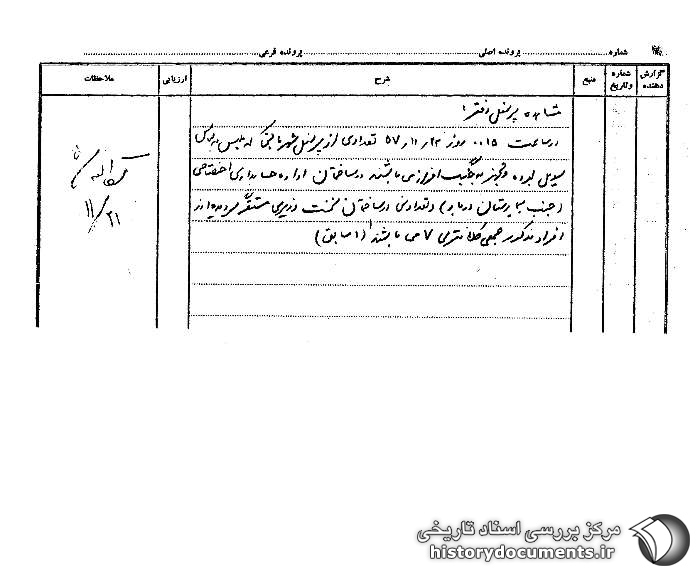 شماره.................... پرونده اصلی.................... پرونده فرعی....................
گزارش دهنده
شماره و تاریخ
منبع
شرح
ارزیابی
ملاحظات
مشاهده پرسنل دفتر:
در ساعت ۰۰۱۵ روز ۲۳ر۱۱ر۵۷ تعدادی از پرسنل شهربانی که ملبس به لباس
سویل بوده و مجهز به میباشند در ساختمان اداره حسابداری اختصاصی
(جنب بیمارستان ) و تعدادی در ساختمان نخست وزیری مستقر
افراد مذکور جمعی کلانتری ۷ می باشند (سابق)
۱۱/۲۱
مرکز بررسی اسناد تاریخی
historydocuments.ir